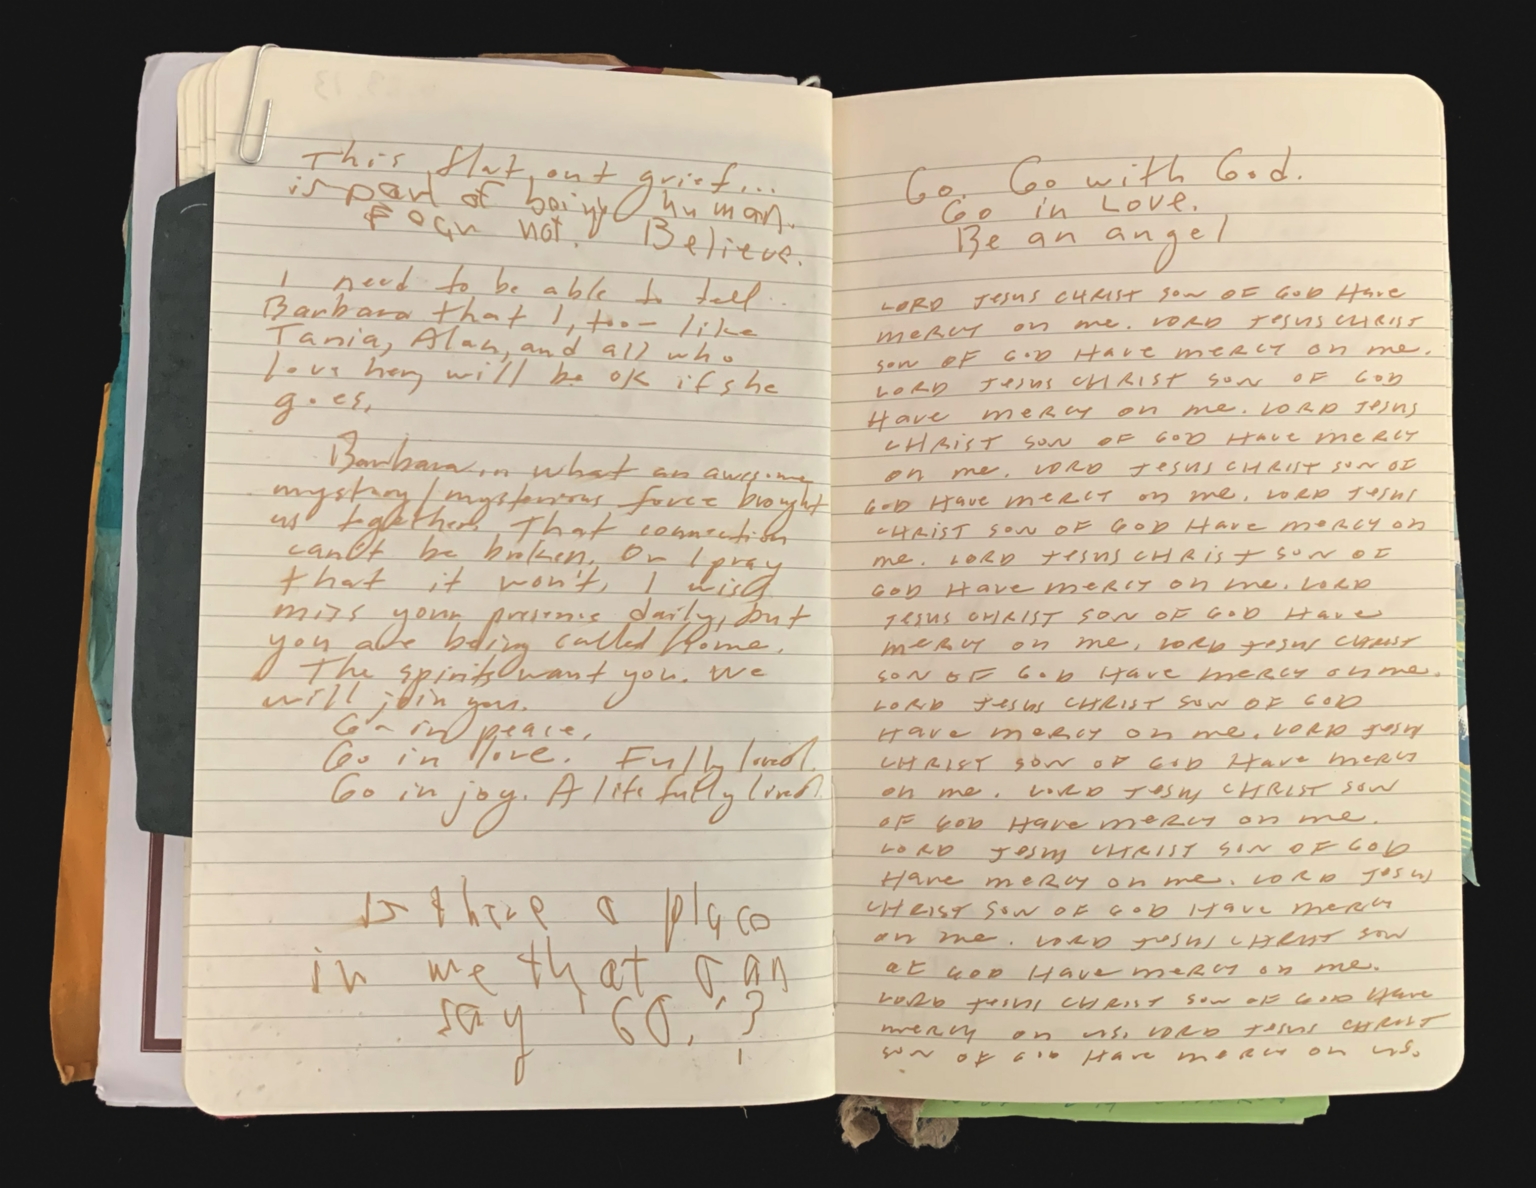 This flat out grief...
is part of being human.
Fear not. Believe.
I need to be able to tell
Barbara that I, too – like
Tania, Alan, and all who
love her, will be ok if she
goes.
Barbara, what an awesome
mystery/mysterious force brought
us together. That connection
can't be broken. Or I pray
that it won't. I will
miss your presence daily, but
you are being called home.
The spirits want you. We
will join you.
Go in peace.
Go in love. Fully loved.
Go in joy. A life fully lived.
Is there a place
in me that can
say 'GO.'?
Go. Go with God.
Go in Love.
Be an angel
LORD JESUS CHRIST SON OF GOD Have
mercy on me. LORD JESUS CHRIST
SON OF GOD Have mercy on me.
LORD JESUS CHRIST SON OF GOD
Have mercy on me. LORD JESUS
CHRIST SON OF GOD Have mercy
on me. LORD JESUS CHRIST SON OF
GOD Have mercy on me. LORD JESUS
CHRIST SON OF GOD Have mercy on
me. LORD JESUS CHRIST SON OF
GOD Have mercy on me. LORD
JESUS CHRIST SON OF GOD Have
mercy on me. LORD JESUS CHRIST
SON OF GOD Have mercy on me.
LORD JESUS CHRIST SON OF GOD
Have mercy on me. LORD JESUS
CHRIST SON OF GOD Have mercy
on me. LORD JESUS CHRIST SON
OF GOD Have mercy on me.
LORD JESUS CHRIST SON OF GOD
Have mercy on me. LORD JESUS
CHRIST SON OF GOD Have mercy
on me. LORD JESUS CHRIST SON
OF GOD Have mercy on me.
LORD JESUS CHRIST SON OF GOD Have
mercy on us. LORD JESUS CHRIST
SON OF GOD Have mercy on us.